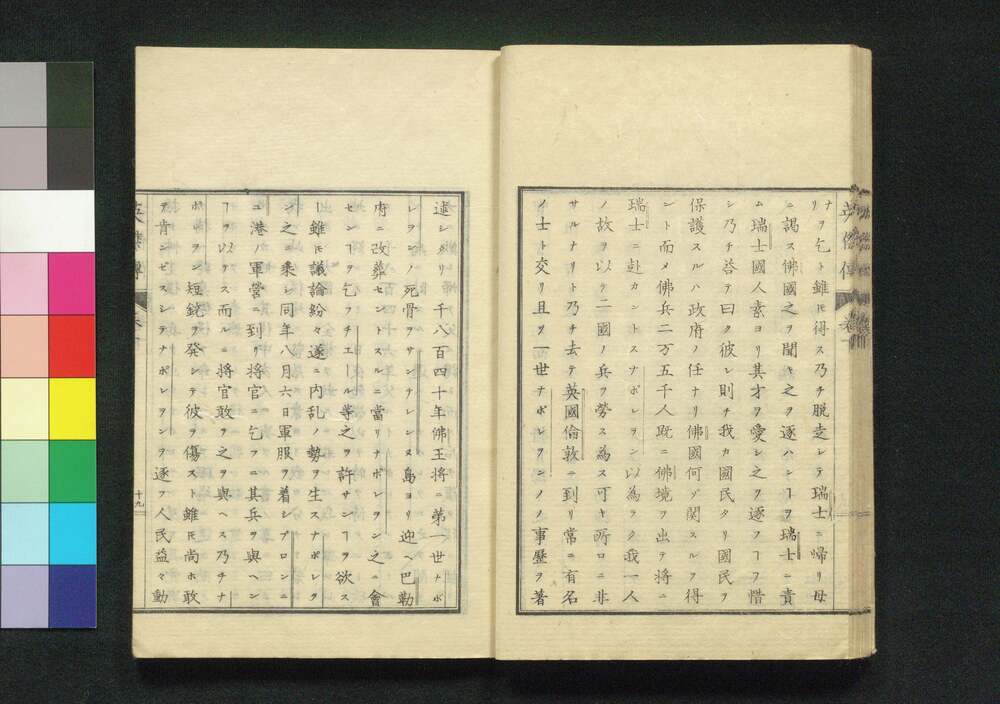 ヲ乞ト雖𪜈得ス乃チ脱走シテ瑞士ニ帰リ母
ニ謁ス佛國之ヲ聞キ之ヲ逐ハンヿヲ瑞士ニ責
ム瑞士國人素ヨリ其才ヲ愛シ之ヲ逐フヿヲ惜
シ乃チ答ヲ曰ク彼レ則チ我カ國民タリ國民ヲ
保護スルハ政府ノ任ナリ佛國何ゾ関スルヲ得
ント而メ佛兵二万五千人既ニ佛境ヲ出テ將ニ
瑞士ニ赴カントスナポレヲン以為ラク我一人
ノ故ヲ以テ二國ノ兵ヲ勞ス為ス可キ所ロニ非
サルナリト乃チ去テ英國倫敦ニ到リ常ニ有名
ノ士ト交リ且ツ一世ナポレヲンノノ事歴ヲ著
述シタリ千八百四十年佛王將ニ第一世ナポ
レヲンノ死骨ヲサンテレンヌ島ヨリ迎ヘ巴勒
府ニ改葬セントスルニ當リナポレヲン之ニ會
センヿヲ乞フチエール等之ヲ許サンヿヲ欲ス
ト雖𪜈議論紛々遂ニ内乱ノ勢ヲ生スナポレヲ
ン之ニ乗シ同年八月六日軍服ヲ着シブロンニ
ユ港ノ軍營ニ到リ將官ニ乞フニ其兵ヲ與ヘン
ヿヲ以ラス而ルニ將官敢ヲ之ヲ與ヘス乃チナ
ポレヲン短銃ヲ發シテ彼ヲ傷スト雖𪜈尚ホ敢
ヲ肯ンゼスシテナポレヲンヲ逐フ人民益々動
十九